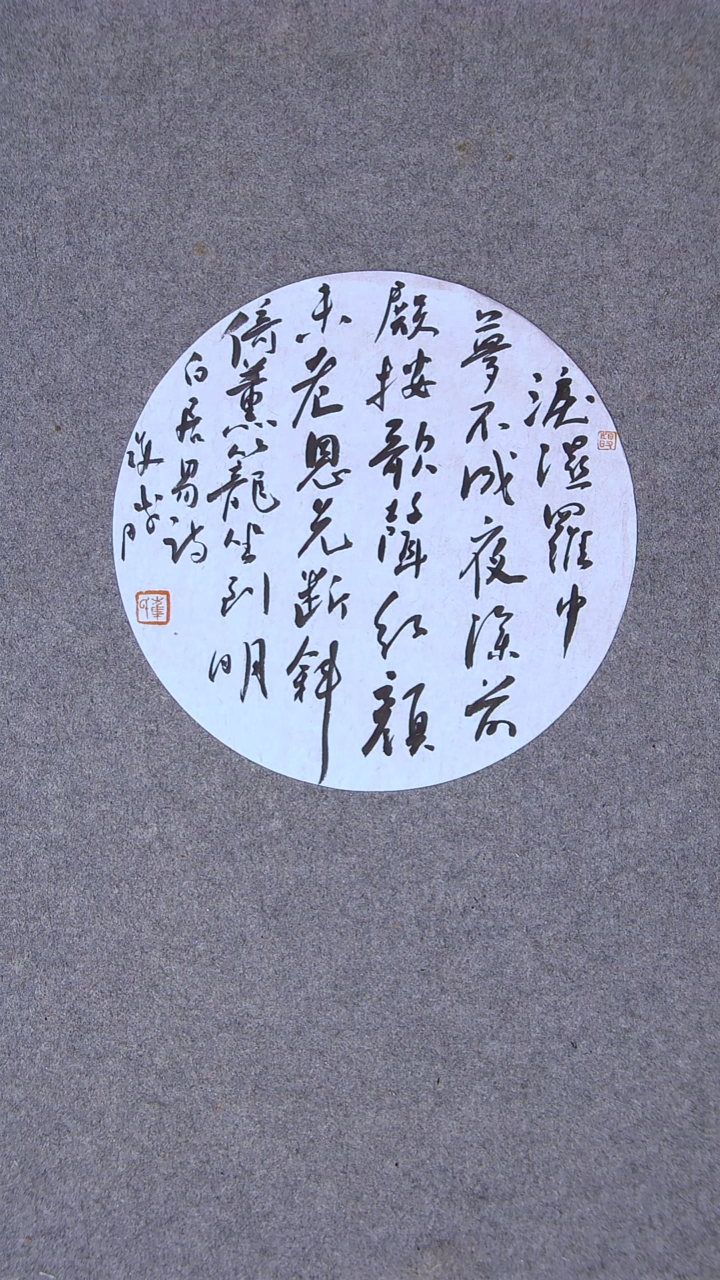 淚濕羅巾
夢不成夜深前
殿按歌聲紅顏
未老恩先斷斜
倚薰籠坐到明
白居易詩